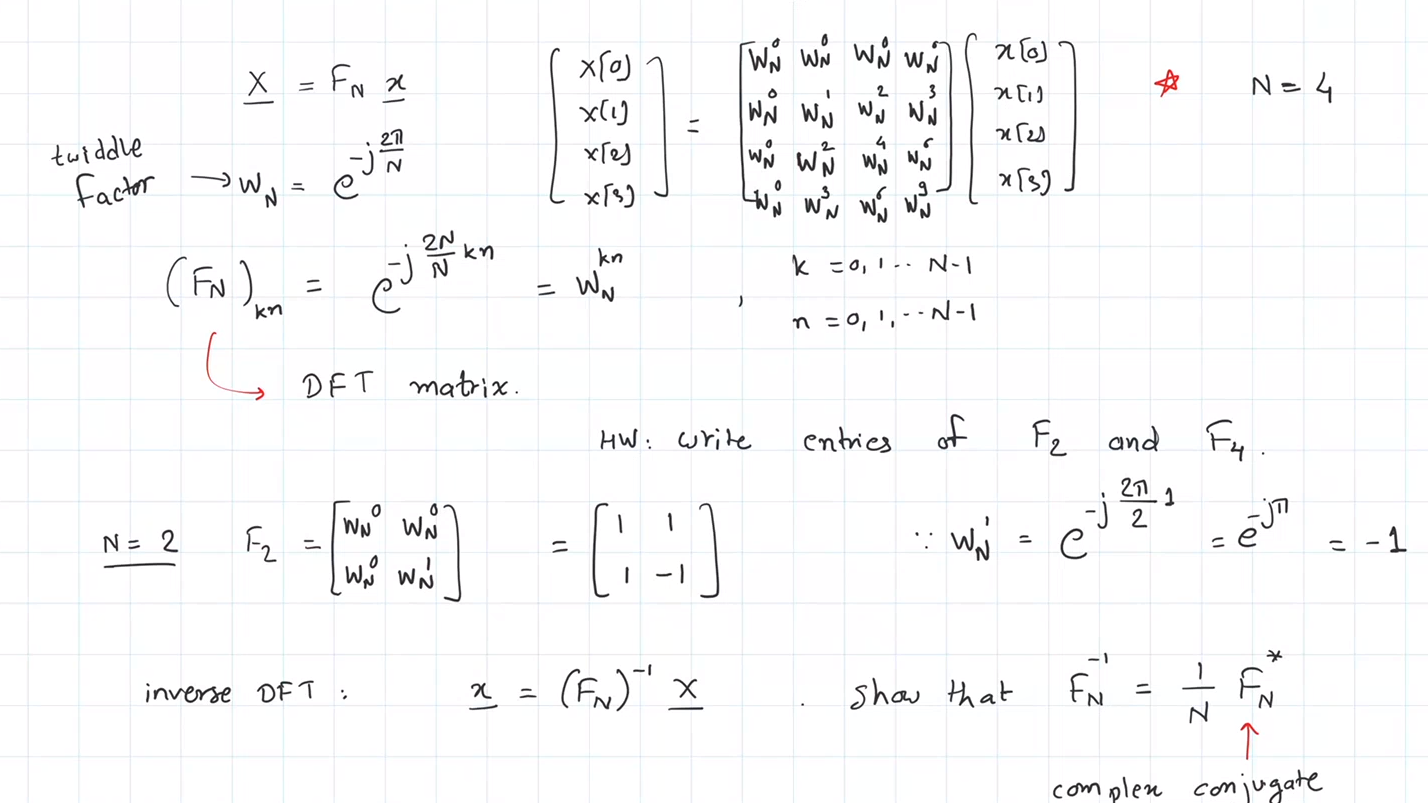 X = F_N x    [X[0] X[1] X[2] X[3]] = [W_N^0 W_N^0 W_N^0 W_N^0; W_N^0 W_N^1 W_N^2 W_N^3; W_N^0 W_N^2 W_N^4 W_N^6; W_N^0 W_N^3 W_N^6 W_N^9] [x[0] x[1] x[2] x[3]]    ☆ N = 4
twiddle factor → W_N = e^{-j 2π/N}
(F_N)_{kn} = e^{-j 2N/N kn} = W_N^{kn} , k = 0, 1 .. N-1
n = 0, 1, .. N-1
DFT matrix.
HW: write entries of F_2 and F_4.
N = 2    F_2 = [W_N^0 W_N^0; W_N^0 W_N^1] = [1 1; 1 -1]    ∵ W_N^1 = e^{-j 2π/2 1} = e^{-jπ} = -1
inverse DFT : x = (F_N)^{-1} X . Show that F_N^{-1} = 1/N F_N^*
complex conjugate